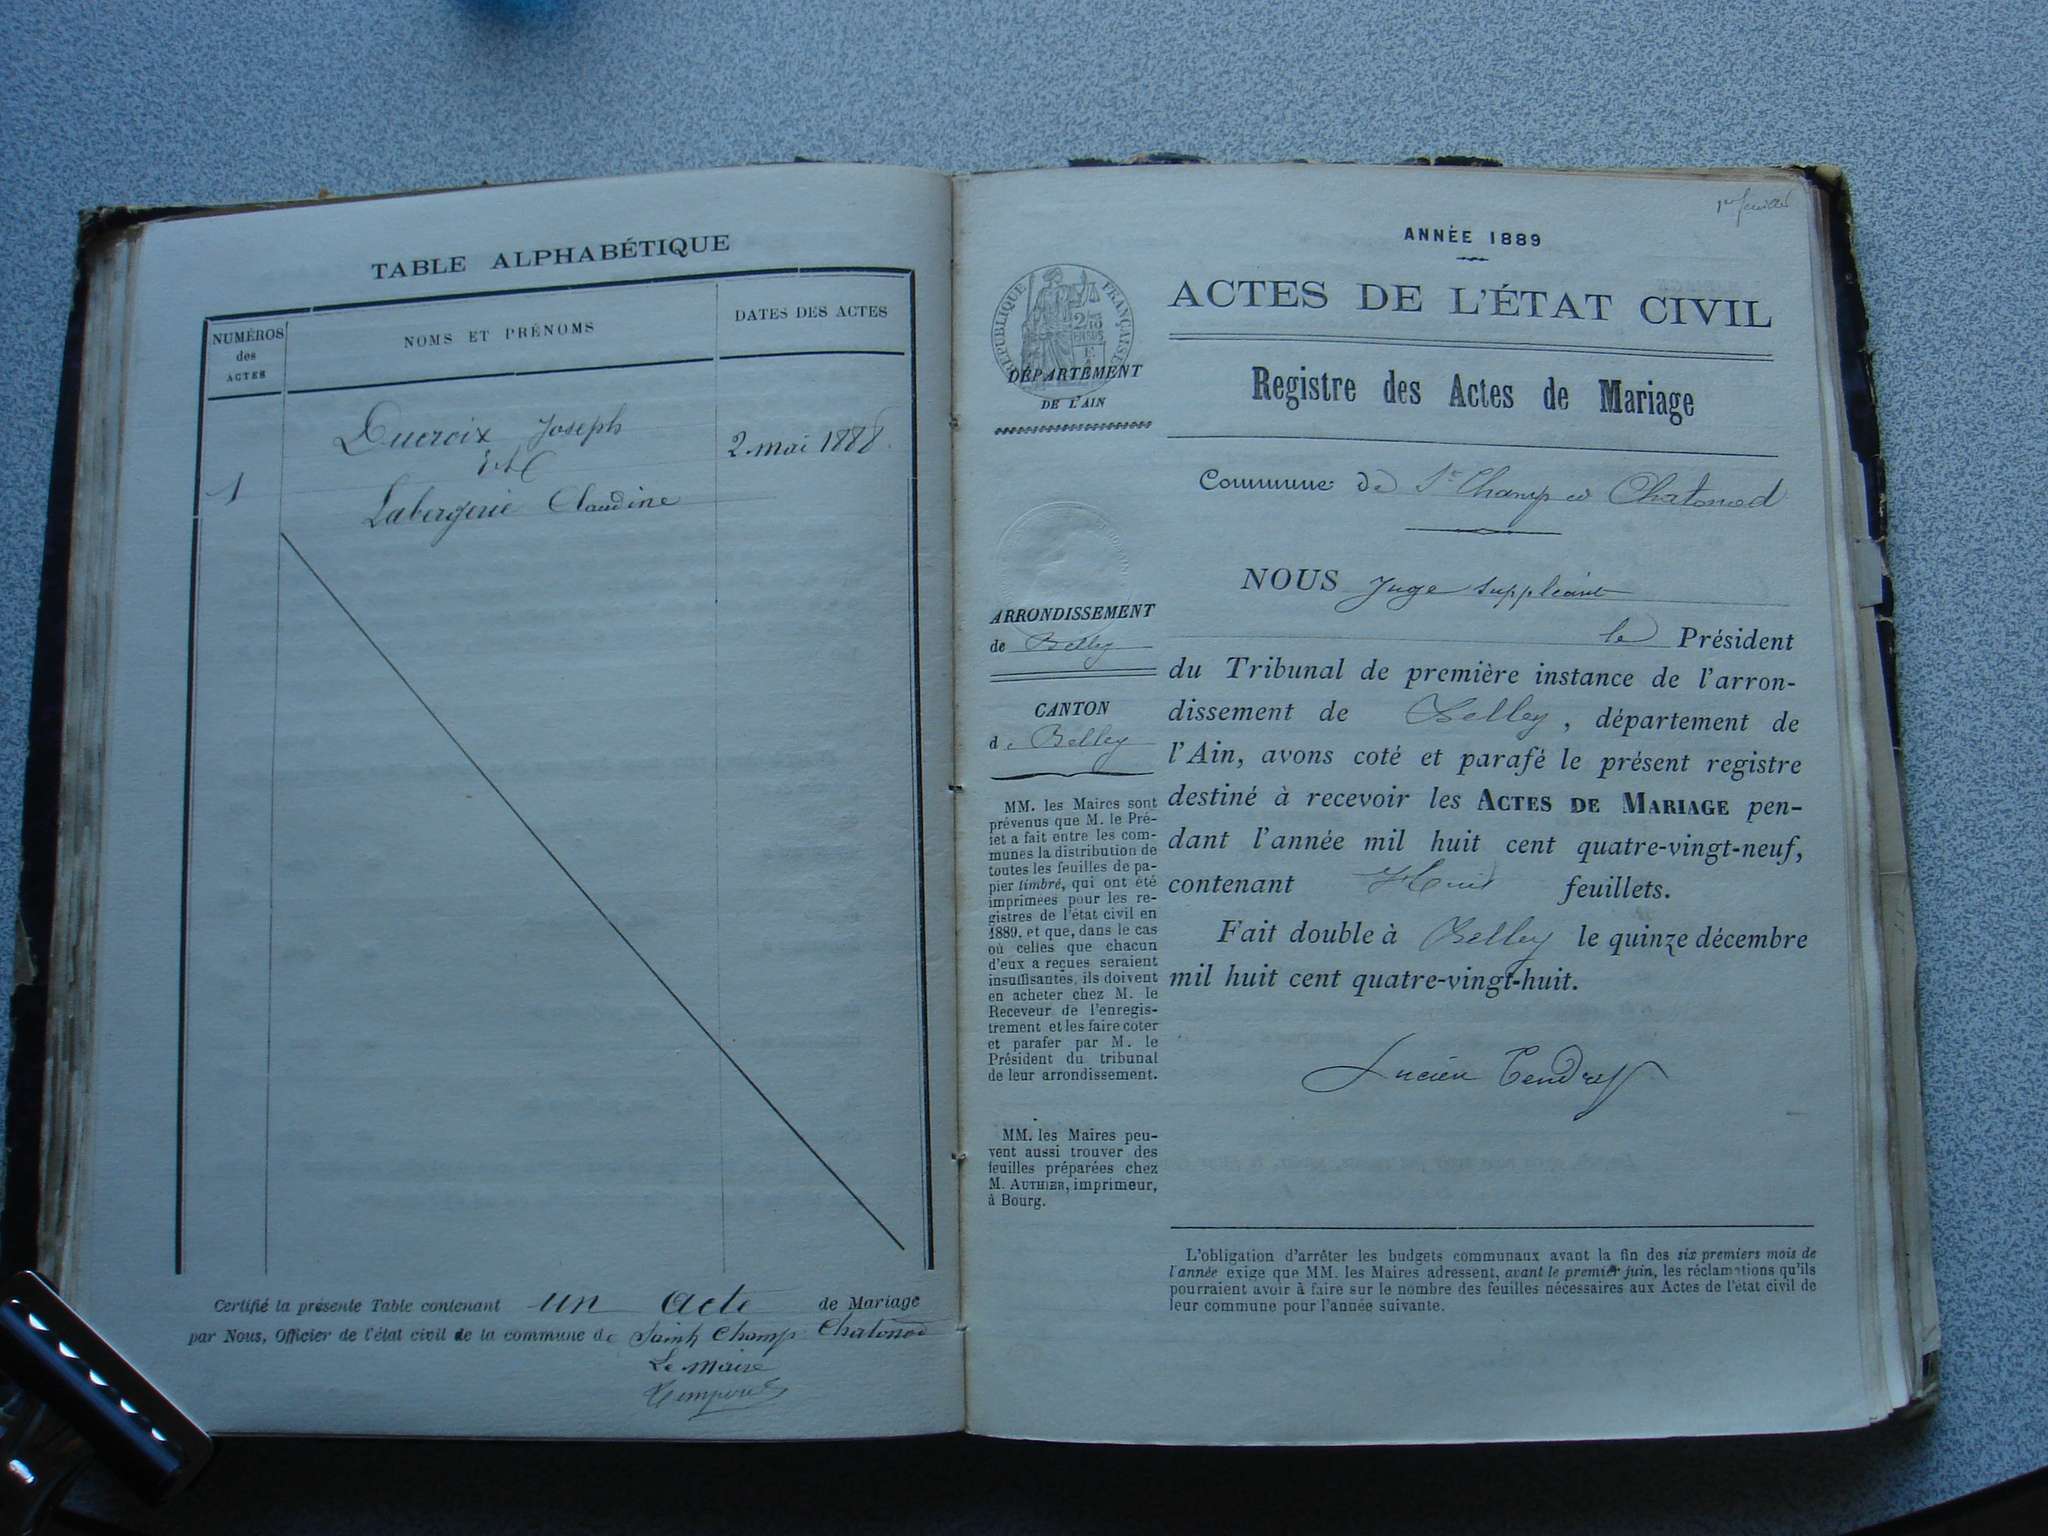 TABLE ALPHABÉTIQUE
NUMÉROS
des
ACTES
NOMS ET PRÉNOMS
DATES DES ACTES
Ducroix Joseph
Et
1
2 mai 1888
Labergerie Claudine
Certifié la présente Table contenant un acte de Mariage
par Nous, Officier de l'état civil de la commune de Saint Champ Chatonod
Le maire
1er feuillet
ANNÉE 1889
ACTES DE L'ÉTAT CIVIL
RÉPUBLIQUE FRANÇAISE
DÉPARTEMENT
DE L'AIN
Registre des Actes de Mariage
Commune de St Champ et Chatonod
ARRONDISSEMENT
de Belley
CANTON
de Belley
MM. les Maires sont
prévenus que M. le Pré-
fet a fait entre les com-
munes la distribution de
toutes les feuilles de pa-
pier timbré, qui ont été
imprimées pour les re-
gistres de l'état civil en
1889, et que, dans le cas
où celles que chacun
d'eux a reçues seraient
insuffisantes, ils doivent
en acheter chez M. le
Receveur de l'enregis-
trement et les faire coter
et parafer par M. le
Président du tribunal
de leur arrondissement.
MM. les Maires peu-
vent aussi trouver des
feuilles préparées chez
M. AUTHIER, imprimeur,
à Bourg.
NOUS Juge suppléant
le Président
du Tribunal de première instance de l'arron-
dissement de Belley, département de
l'Ain, avons coté et parafé le présent registre
destiné à recevoir les ACTES DE MARIAGE pen-
dant l'année mil huit cent quatre-vingt-neuf,
contenant Huit feuillets.
Fait double à Belley le quinze décembre
mil huit cent quatre-vingt-huit.
Lucien Tendret
L'obligation d'arrêter les budgets communaux avant la fin des six premiers mois de
l'année exige que MM. les Maires adressent, avant le premier juin, les réclamations qu'ils
pourraient avoir à faire sur le nombre des feuilles nécessaires aux Actes de l'état civil de
leur commune pour l'année suivante.